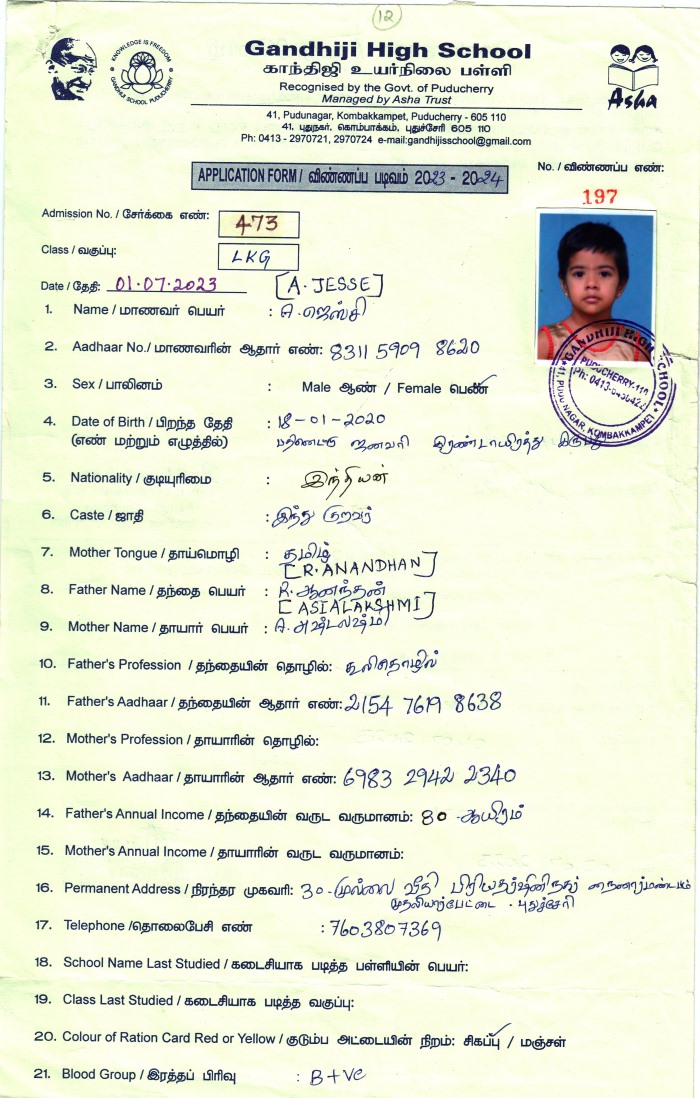 12
KNOWLEDGE IS FREEDOM
GANDHIJI SCHOOL PUDUCHERRY
Gandhiji High School
காந்திஜி உயர்நிலை பள்ளி
Recognised by the Govt. of Puducherry
Managed by Asha Trust
Asha
41, Pudunagar, Kombakkampet, Puducherry - 605 110
41, புதுநகர், கொம்பாக்கம், புதுச்சேரி 605 110
Ph: 0413 - 2970721, 2970724 e-mail:gandhijisschool@gmail.com
APPLICATION FORM / விண்ணப்ப படிவம் 2023 - 2024
No. / விண்ணப்ப எண்:
197
Admission No. / சேர்க்கை எண்: 473
Class / வகுப்பு: LKG
Date / தேதி: 01.07.2023 [A. JESSE]
1. Name / மாணவர் பெயர் : A. ஜெஸ்சி
2. Aadhaar No./ மாணவரின் ஆதார் எண்: 8311 5909 8620
3. Sex / பாலினம் : Male ஆண் / Female பெண்
GANDHIJI HIGH SCHOOL
PUDUCHERRY-110
41, PUDU NAGAR, KOMBAKKAMPET
4. Date of Birth / பிறந்த தேதி : 18-01-2020
(எண் மற்றும் எழுத்தில்) பதினெட்டு ஜனவரி இரண்டாயிரத்து இருபது
5. Nationality / குடியுரிமை : இந்தியன்
6. Caste / ஜாதி : இந்து குறவர்
7. Mother Tongue / தாய்மொழி : தமிழ்
[R. ANANDHAN]
8. Father Name / தந்தை பெயர் : R. ஆனந்தன்
[ASIALAKSHMI]
9. Mother Name / தாயார் பெயர் : A. அஷ்டலஷ்மி
10. Father's Profession / தந்தையின் தொழில்: கூலிதொழில்
11. Father's Aadhaar / தந்தையின் ஆதார் எண்: 2154 7619 8638
12. Mother's Profession / தாயாரின் தொழில்:
13. Mother's Aadhaar / தாயாரின் ஆதார் எண்: 6983 2942 2340
14. Father's Annual Income / தந்தையின் வருட வருமானம்: 80 ஆயிரம்
15. Mother's Annual Income / தாயாரின் வருட வருமானம்:
16. Permanent Address / நிரந்தர முகவரி: 30-முல்லை வீதி பிரியதர்ஷினிநகர் நைனார்மண்டபம்
முதலியார்பேட்டை - புதுச்சேரி
17. Telephone /தொலைபேசி எண் : 7603807369
18. School Name Last Studied / கடைசியாக படித்த பள்ளியின் பெயர்:
19. Class Last Studied / கடைசியாக படித்த வகுப்பு:
20. Colour of Ration Card Red or Yellow / குடும்ப அட்டையின் நிறம்: சிகப்பு / மஞ்சள்
21. Blood Group / இரத்தப் பிரிவு : B+ve